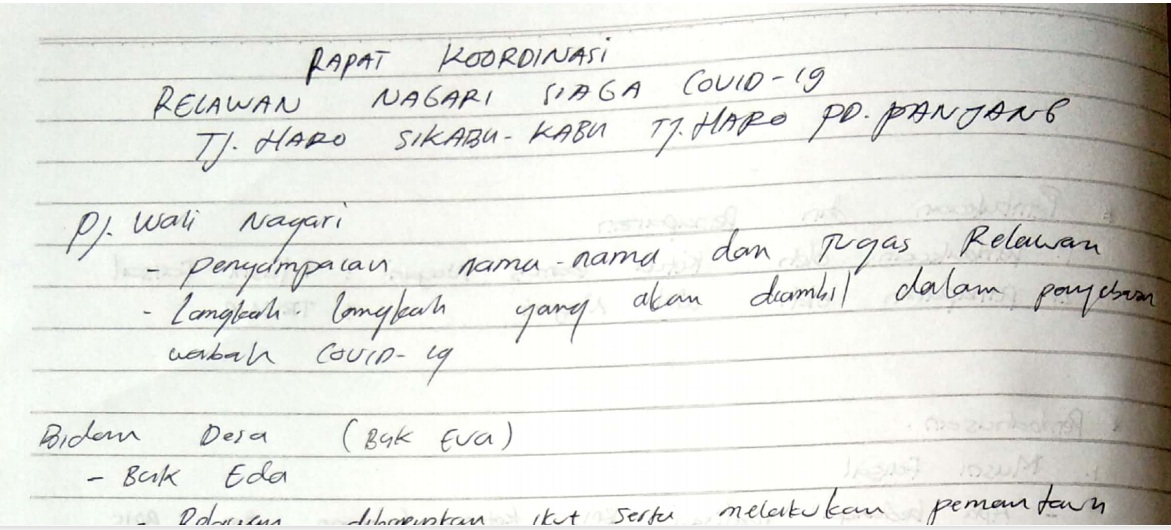 RAPAT KOORDINASI
RELAWAN NAGARI SIAGA COVID-19
TJ. HARO SIKABU-KABU TJ. HARO PD. PANJANG
Pj. Wali Nagari
- penyampaian nama-nama dan Tugas Relawan
- Langkah-langkah yang akan diambil dalam penyebaran
wabah COVID-19
Bidan Desa (Buk Eva)
- Buk Eda
- Relawan diharapkan ikut serta melakukan pemantauan